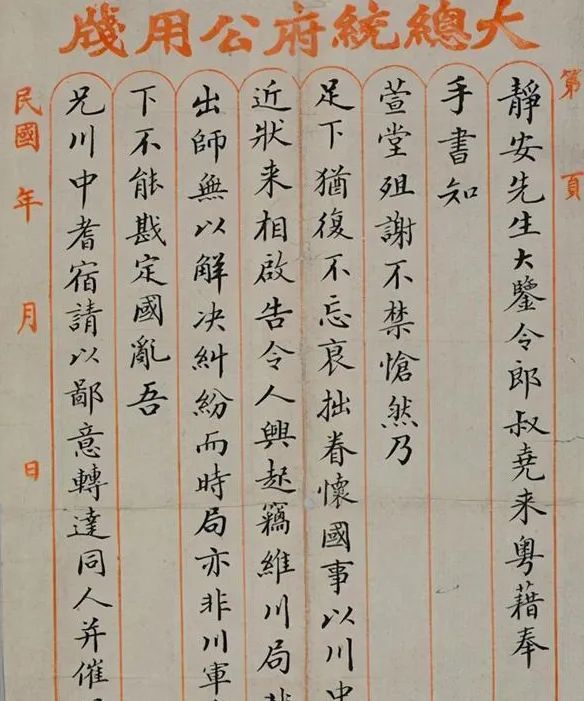 大總統府公用牋
第 頁
靜安先生大鑒令郎叔堯来粵藉奉
手書知
萱堂殂謝不禁愴然乃
足下猶復不忘衰拙眷懷國事以川中
近狀来相啟告令人興起竊維川局非
出師無以解决糾紛而時局亦非川軍
下不能戡定國亂吾
兄川中耆宿請以鄙意轉達同人并催
民國 年 月 日